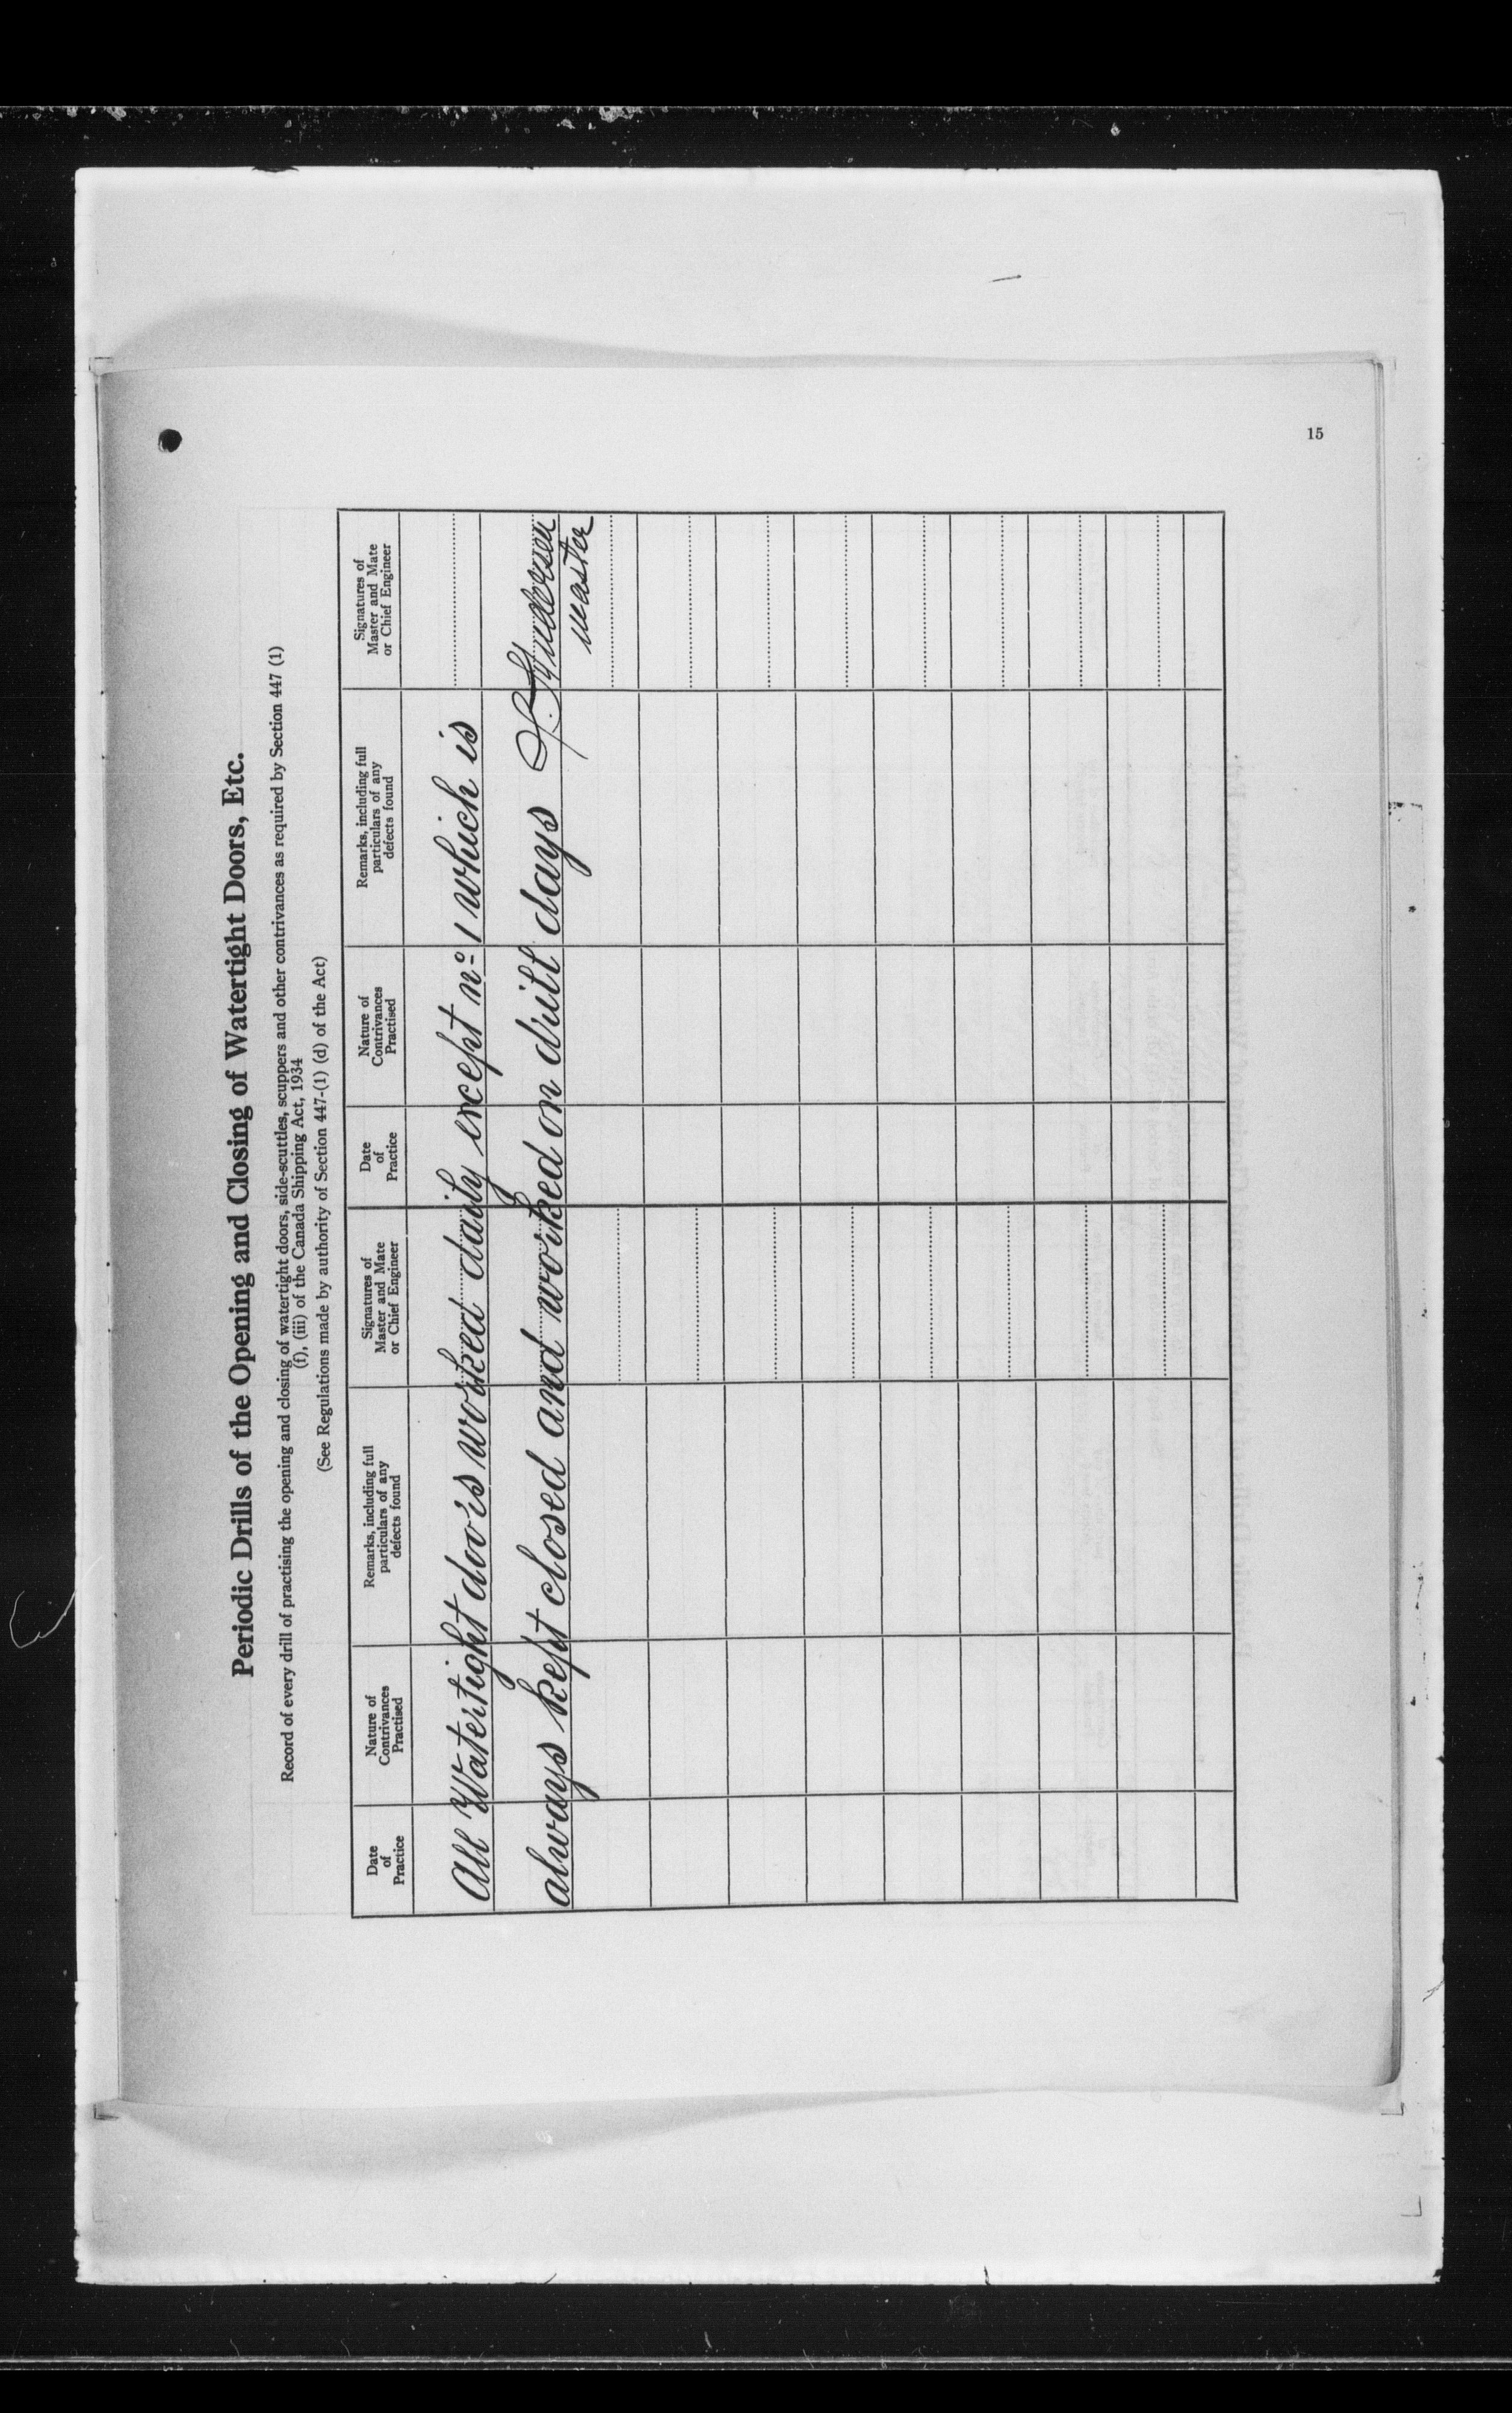 15
Periodic Drills of the Opening and Closing of Watertight Doors, Etc.
Record of every drill of practising the opening and closing of watertight doors, side-scuttles, scuppers and other contrivances as required by Section 447 (1)
(f), (iii) of the Canada Shipping Act, 1934
(See Regulations made by authority of Section 447-(1) (d) of the Act)
Date of Practice Nature of Contrivances Practised Remarks, including full particulars of any defects found Signatures of Master and Mate or Chief Engineer Date of Practice Nature of Contrivances Practised Remarks, including full particulars of any defects found Signatures of Master and Mate or Chief Engineer
All Watertight doors worked daily except no 1 which is
always kept closed and worked on drill days
Master